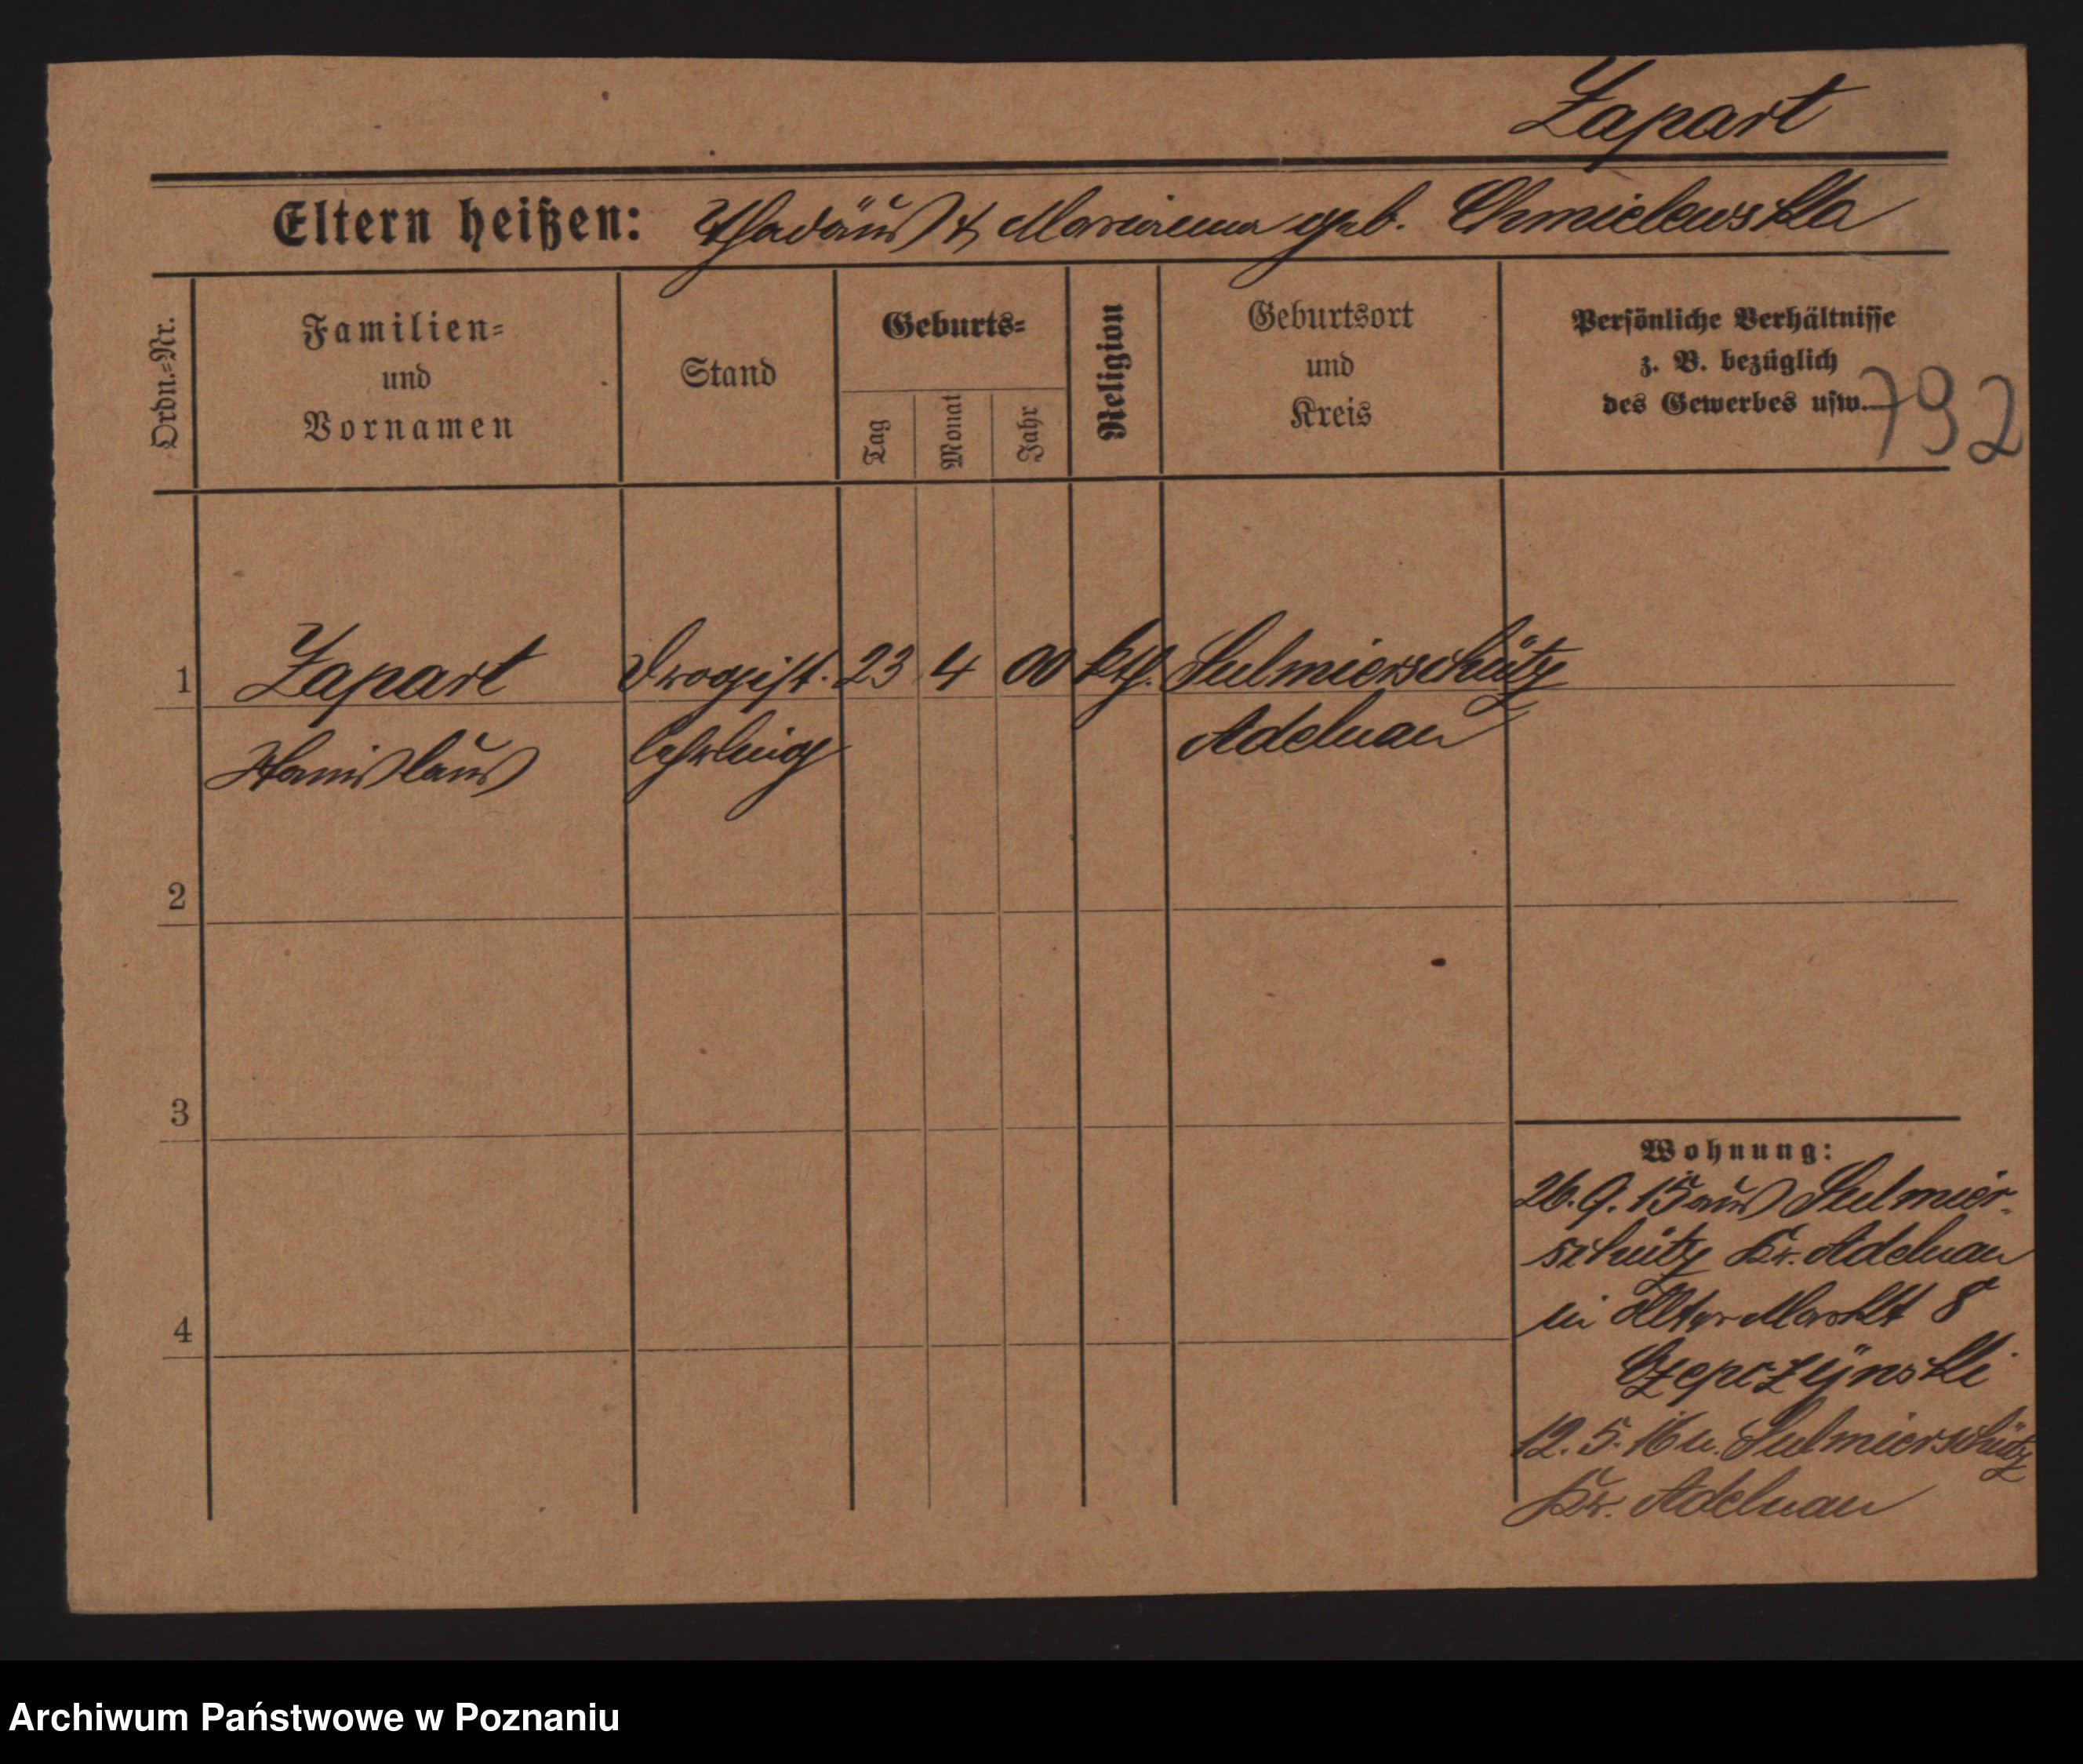 Zapart
Eltern heißen: Thadäus & Marianna geb. Chmielewska
Ordn.=Nr.
Familien=
und
Vornamen
Stand
Geburts=
Tag
Monat
Jahr
Religion
Geburtsort
und
Kreis
Persönliche Verhältnisse
z. B. bezüglich
des Gewerbes usw.
792
1
Zapart Drogist. 23 4 00 kth. Sulmierschütz
Stanislaus lehrling Adelnau
2
3
4
Wohnung:
26.9.15 aus Sulmier-
schütz Kr. Adelnau
in Alter Markt 8
Czepczynski
12.5.16 n. Sulmierschütz
Kr. Adelnau
Archiwum Państwowe w Poznaniu